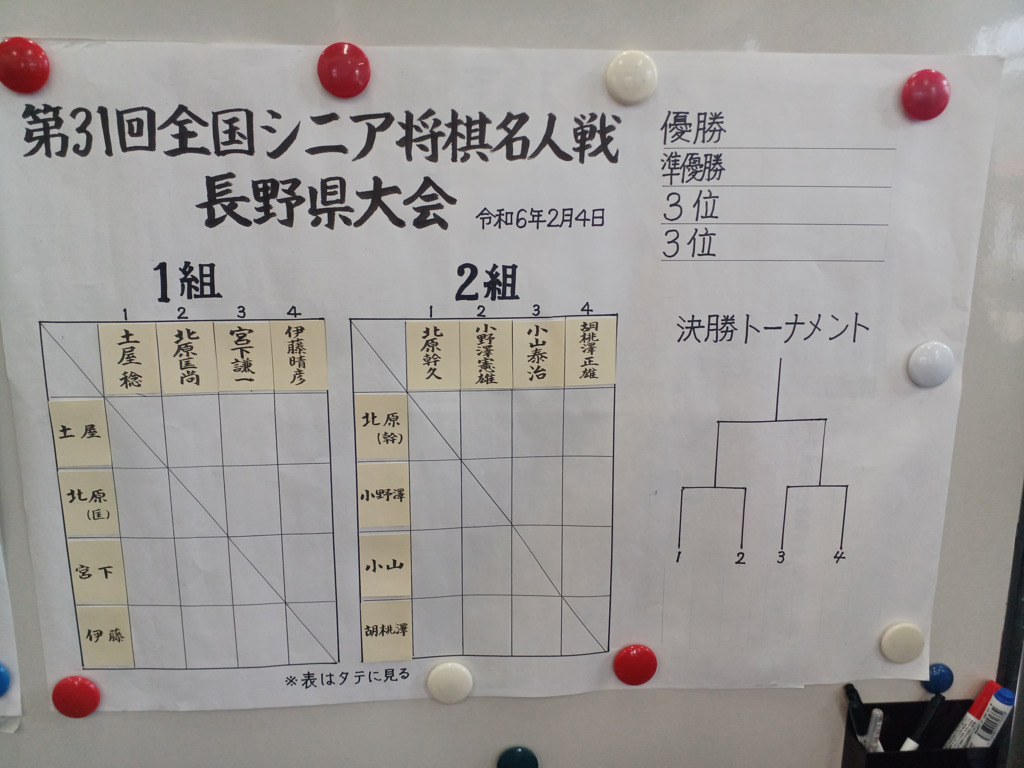 第31回全国シニア将棋名人戦
長野県大会 令和6年2月4日
優勝
準優勝
3位
3位
1組
1 2 3 4
土屋稔 北原匡尚 宮下謙一 伊藤晴彦
土屋
北原(匡)
宮下
伊藤
2組
1 2 3 4
北原幹久 小野澤憲雄 小山泰治 胡桃澤正雄
北原(幹)
小野澤
小山
胡桃澤
※表はタテに見る
決勝トーナメント
1 2 3 4